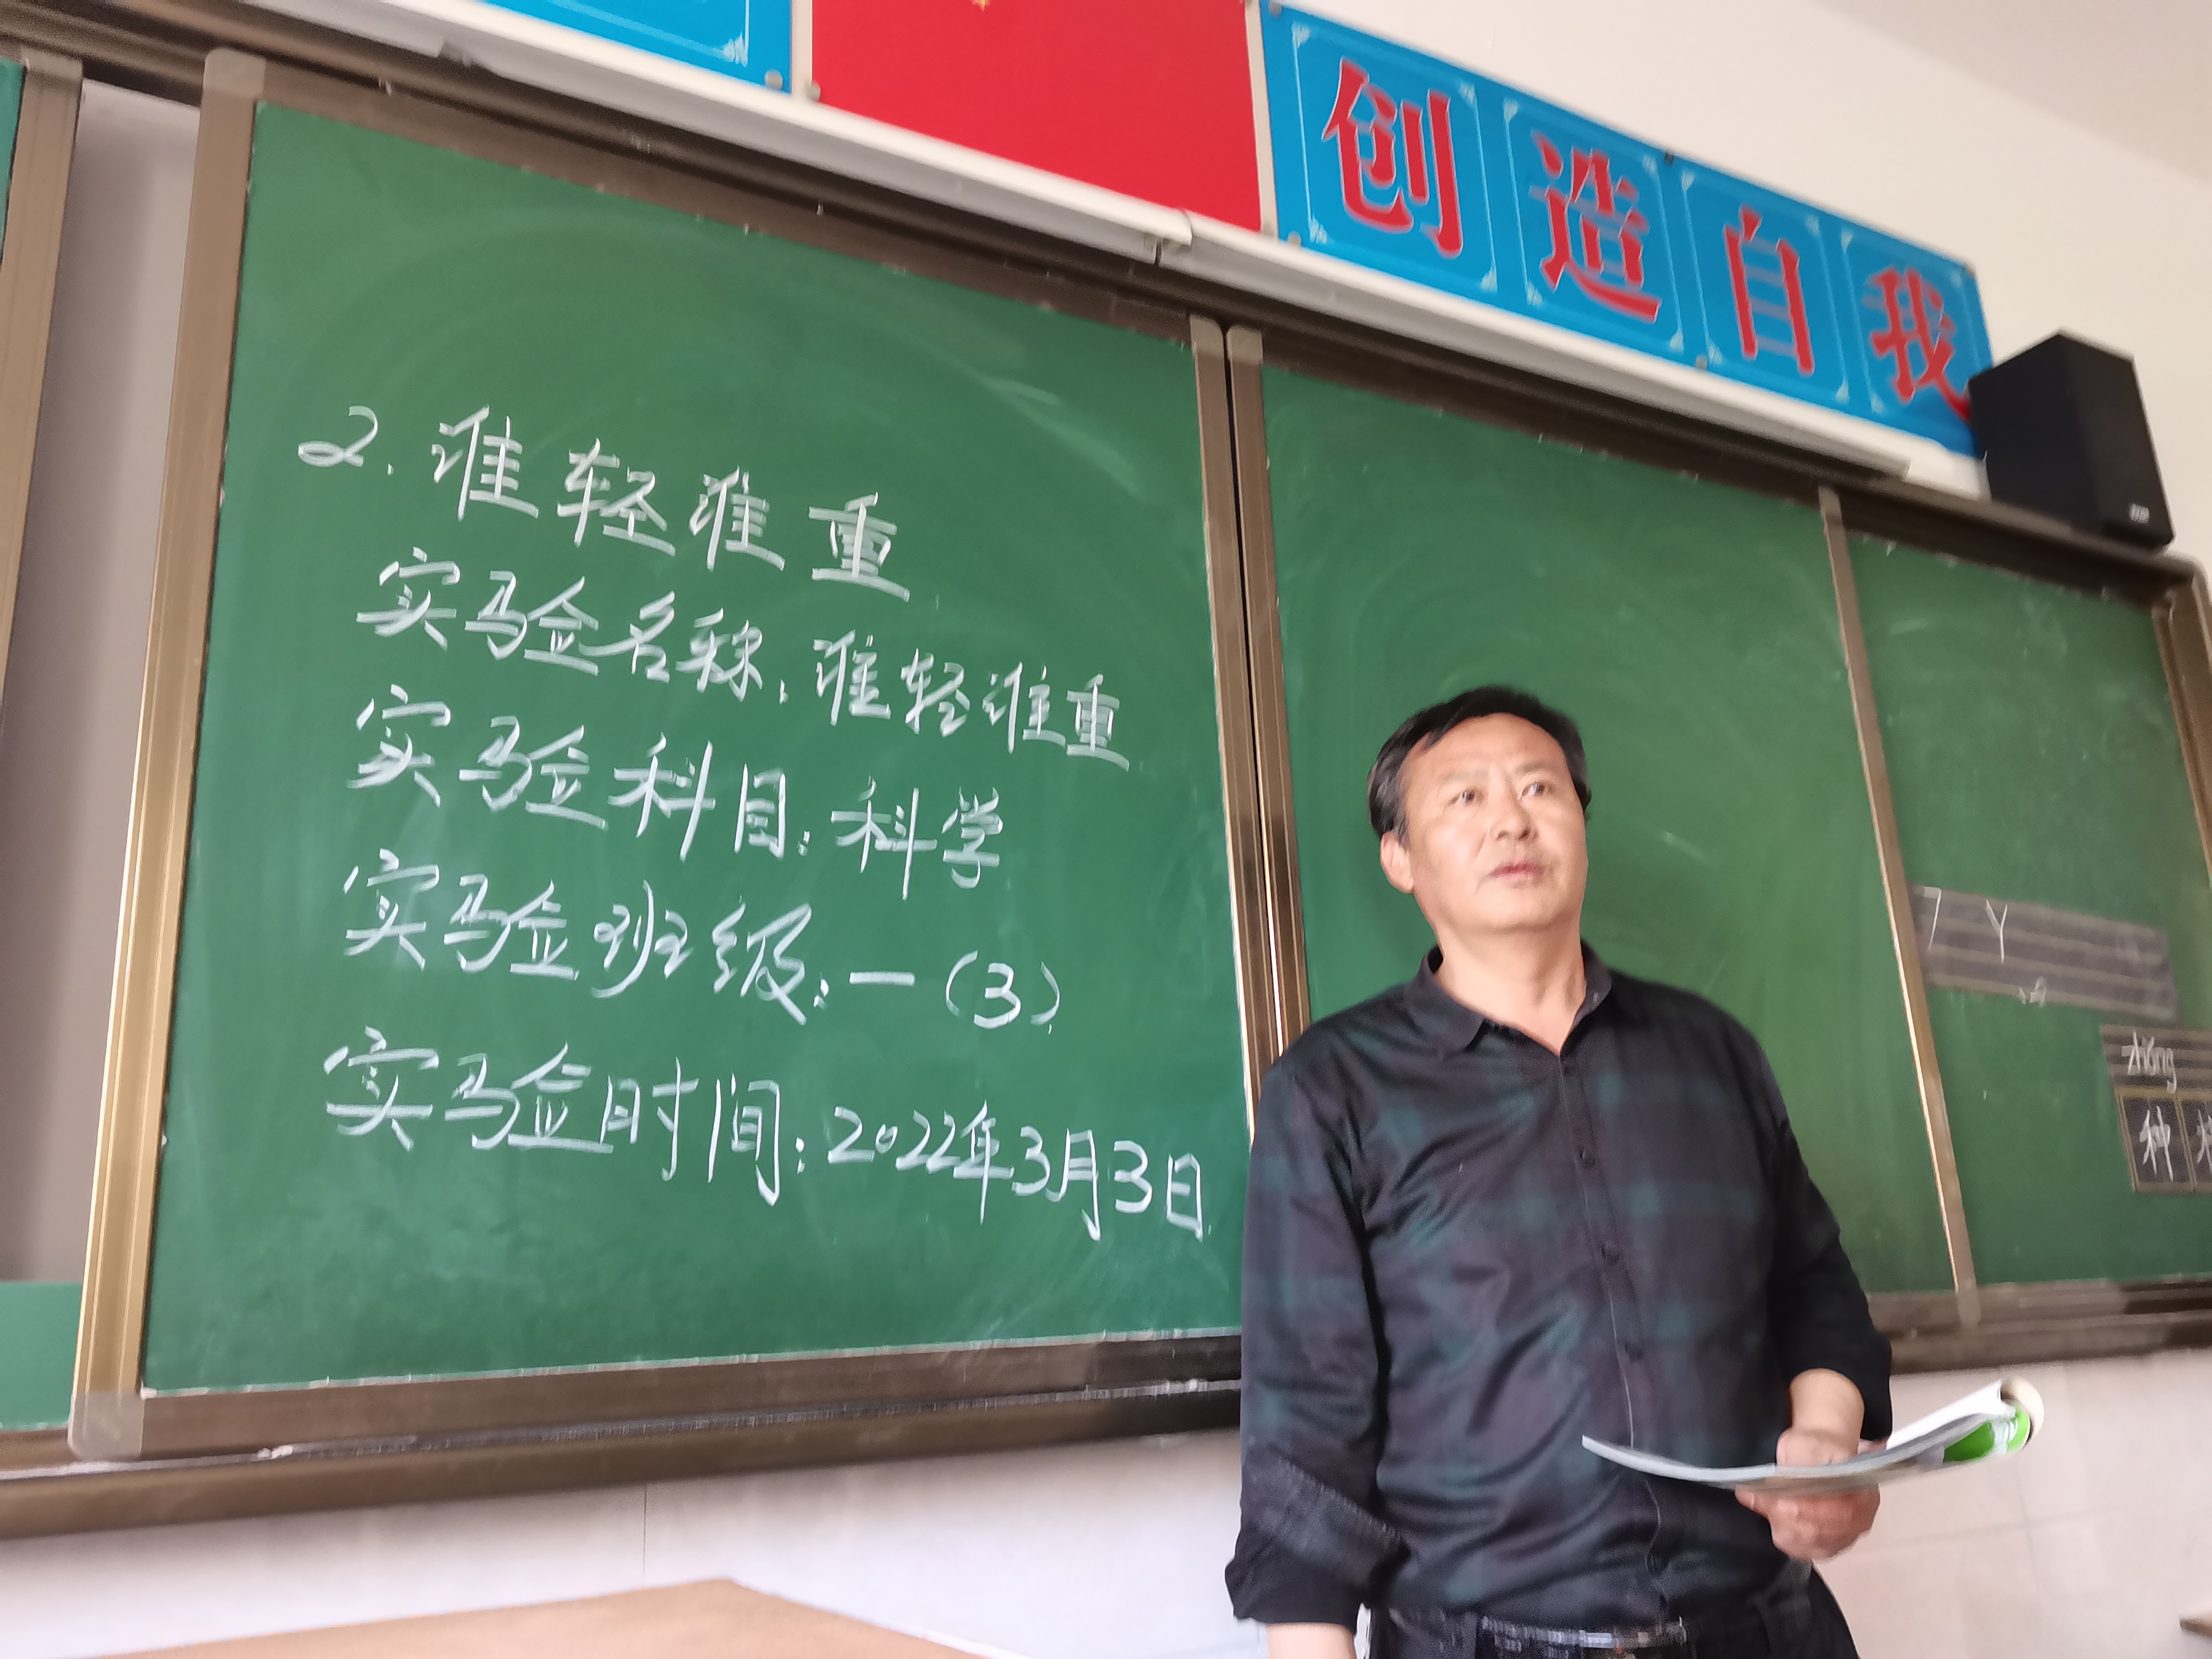 创造自我
2. 谁轻谁重
实验名称:谁轻谁重
实验科目:科学
实验班级:一(3)
实验时间:2022年3月3日
Y
zhǒng
种